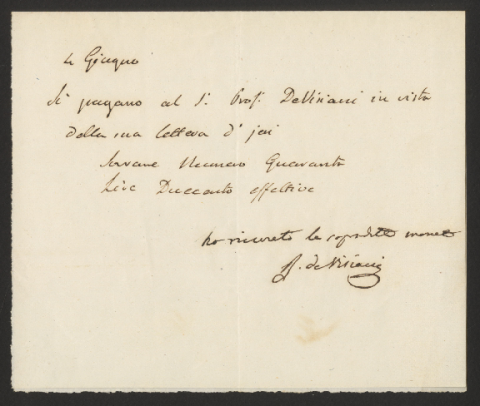 4 Giugno
Si pagano al S. Prof. DeVisiani in vista
della sua lettera d' jeri
Sovrane Numero Quaranta
Lire Duecento effettive
ho ricevuto le sopradette monete
R. de Visiani